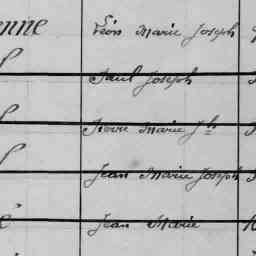 enne Léon Marie Joseph
Paul Joseph
Pierre Marie Jh
Jean Marie Joseph
é Jean Marie